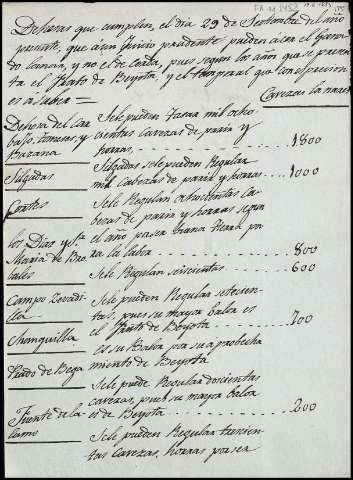 Dehesas que cumplen el dia 29 de Septiembre del año
presente, que a un Juicio prudente pueden acer el Gana
do lanar, y no el de Cerda, pues segun los años que se presen
ta el fruto de Beyota, y el temporal que
es a saver =
Cavezas lanares
Dehesa del Car
bajo, tomeses, y
Bazana
Se le pueden tasar mil ocho
cientas cavezas de parir y
horras, 1800
Salgadas
Salgadas se le pueden Regular
mil Cabezas de parir y horras 1000
Cortes
Se le Regulan ochocientas ca
bezas de parir y horras segun
los Diaz y Sta
Maria de Bre
tales
el año, pasea buena tierra pa
ra la labor 800
Se le Regulan seiscientas 600
Campo Zevadi
lla
Se le pueden Regular setecien
tas, pues su mayor balor es
el fruto de Beyota 700
Chonquilla
es su Balor por su aprobecha
miento de Beyota
Prado de Bega
Se le puede Regular doscientas
cavezas, pues su mayor balor
es de Beyota 200
Fuente de la
lamo
Se le pueden Regular trescien
tas cavezas, horras por sea